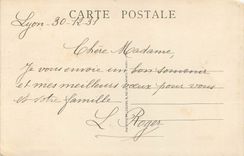 CARTE POSTALE
Lyon - 30-12-31
Chère Madame,
Je vous envoie un bon souvenir
et mes meilleurs vœux pour vous
et votre famille
L. Roger